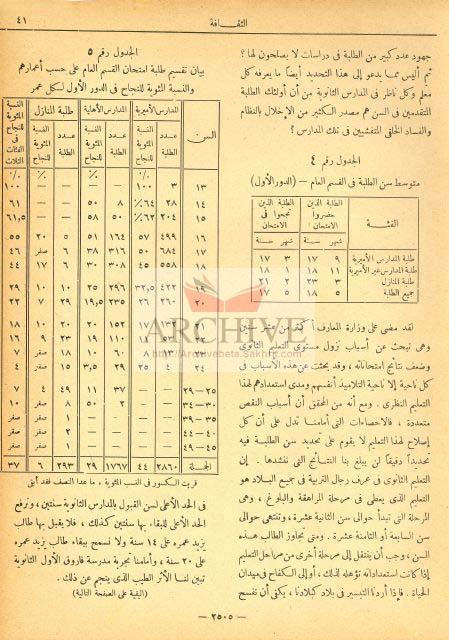 ٤١
الثقافة
جهود عدد كبير من الطلبة فى دراسات لا يصلحون لها ؟
ثم أليس مما يدعو إلى هذا التحديد أيضا ما يعرفه كل
معلم وكل ناظر فى المدارس الثانوية من أن أولئك الطلبة
المتقدمين فى السن هم مصدر الكثير من الإخلال بالنظام
والفساد الخلقى المتفشيين فى تلك المدارس ؟
الجدول رقم ٤
متوسط سن الطلبة فى القسم العام — (الدور الأول)
الفئة
الطلبة الذين حضروا الامتحان
الطلبة الذين نجحوا فى الامتحان
شهر سنة شهر سنة
طلبة المدارس الأميرية ٩ ١٧ ٣ ١٧
طلبة المدارس غير الأميرية ١١ ١٨ ١ ١٨
طلبة المنازل ٣ ٢٣ ٢ ٢١
جميع الطلبة ٥ ١٨ ٥ ١٧
لقد مضى على وزارة المعارف أكثر من عشر سنين
وهى تبحث عن أسباب نزول مستوى التعليم الثانوى
وضعف نتائج امتحاناته ، وقد بحثت عن هذه الأسباب فى
كل ناحية إلا ناحية التلاميذ أنفسهم ومدى استعدادهم لهذا
التعليم النظرى . ومع أنه من المحقق أن أسباب النقص
متعددة ، فالاحصاءات التى أمامنا تدل على أن كل
إصلاح لهذا التعليم لا يقوم على تحديد سن الطلبة فيه
تحديداً دقيقاً لن يبلغ بنا النتائج التى ننشدها . إن
التعليم الثانوى فى عرف رجال التربية فى جميع البلاد هو
التعليم الذى يعطى فى مرحلة المراهقة والبلوغ ، وهى
المرحلة التى تبدأ حوالى سن الثانية عشرة ، وتنتهى حوالى
سن السابعة أو الثامنة عشرة . ومتى تجاوز الطالب هذه
السن ، وجب أن ينتقل إلى مرحلة أخرى من مراحل التعليم
إذا كانت استعداداته تؤهله لذلك ، أو إلى الكفاح فى ميدان
الحياة . فإذا أردنا التيسير فى بلاد كبلادنا ، يكفى أن نفسح
الجدول رقم ٥
بيان تقسيم طلبة امتحان القسم العام على حسب أعمارهم
والنسبة المئوية للنجاح فى الدور الأول لكل عمر
السن
المدارس الأميرية المدارس الأهلية طلبة المنازل
عدد الطلبة النسبة المئوية للنجاح
النسبة المئوية للنجاح فى الفئات الثلاث
١٣ ٣ ١٠٠ — — — — ١٠٠
١٤ ٢٨ ٦٤٪ ٨ ٥٠ — — ٦١
١٥ ٢٠٤ ٦٢٪ ٥٨ ٥٠ — — ٦١,٥
١٦ ٤٩٩ ٥٧ ١٦٤ ٥١ ٥ ٢٠ ٥٥
١٧ ٦٨٤ ٥٠ ٣١٦ ٣٨ ٦ صفر ٤٦
١٨ ٥٥٨ ٤٥ ٣٠٨ ٣٠ ٦ ١٧ ٤٤
١٩ ٤٢٢ ٣٢,٥ ٢٩٦ ٢٥ ١٠ ١٠ ٢٩
٢٠ ٢٦٠ ٢٦ ٢٣٥ ١٩,٥ ٢٩ ٧ ٢٢
٢٥—٢٩ — — ٣٧ ١١ ٤٩ ٤ ٧
الجملة ٢٨٦٠ ٤٤ ١٧٦٧ ٢٩ ٢٩٣ ٦ ٣٧
قربت الكسور فى النسب المئوية ، ما عدا النصف فقد أبقى
فى الحد الأعلى لسن القبول بالمدارس الثانوية سنتين ، ونرفع
الحد الأعلى للبقاء بها سنتين كذلك ، فلا يقبل بها طالب
يزيد عمره على ١٤ سنة ولا نسمح ببقاء طالب يزيد عمره
على ٢٠ سنة ، وأمامنا تجربة مدرسة فاروق الأول الثانوية
تبين لنا الأثر الطيب الذى ينجم عن ذلك .
(البقية على الصفحة التالية)
— ٢٥٠٥ —
ARCHIVE
http://Archivebeta.Sakhrit.com